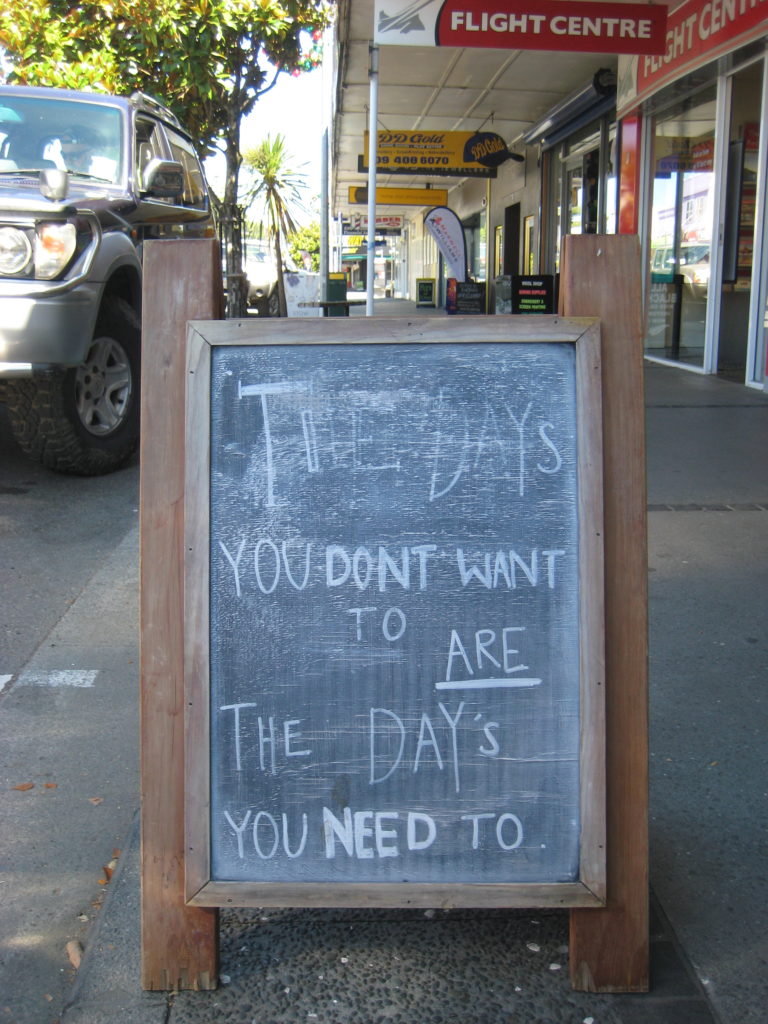 FLIGHT CENTRE
FLIGHT CENTRE
DD Gold
09 408 6070
DD Gold
THE DAYS
YOU DONT WANT
TO
ARE
THE DAY'S
YOU NEED TO.